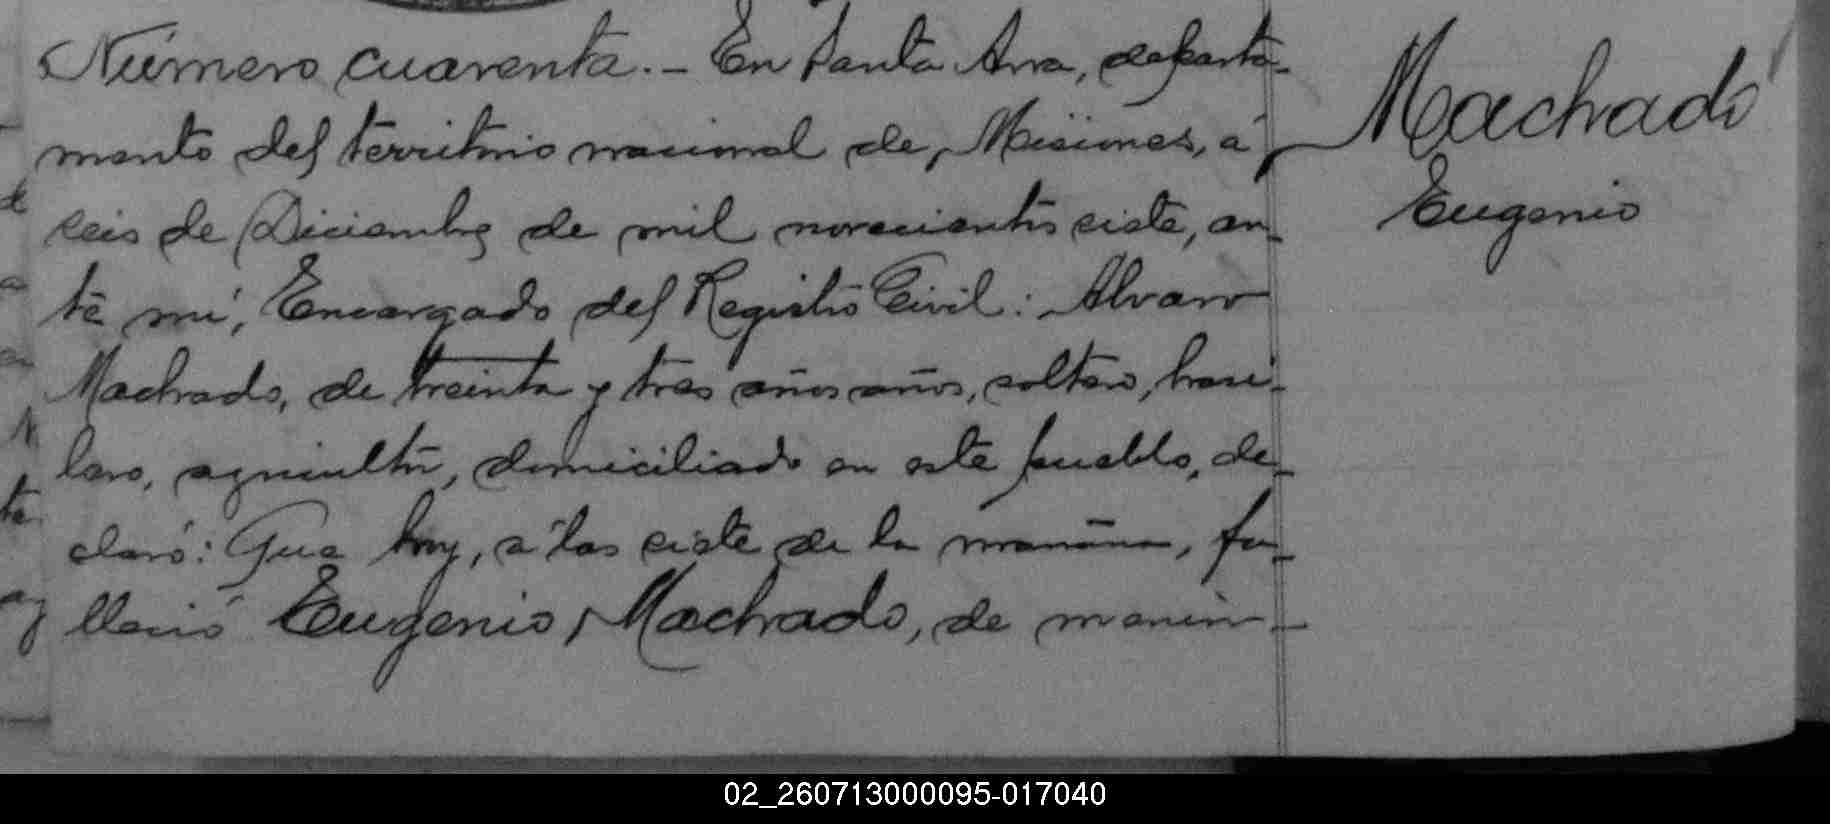 Número cuarenta.- En Santa Ana, departa-
mento del territorio nacional de Misiones, á
seis de Diciembre de mil novecientos siete, an-
te mí, Encargado del Registro Civil: Alvaro
Machado, de treinta y tres años años, soltero, brasi-
lero, agricultor, domiciliado en este pueblo, de-
claró: Que hoy, á las siete de la mañana, fa-
lleció Eugenio Machado, de
Machado
Eugenio
02_260713000095-017040